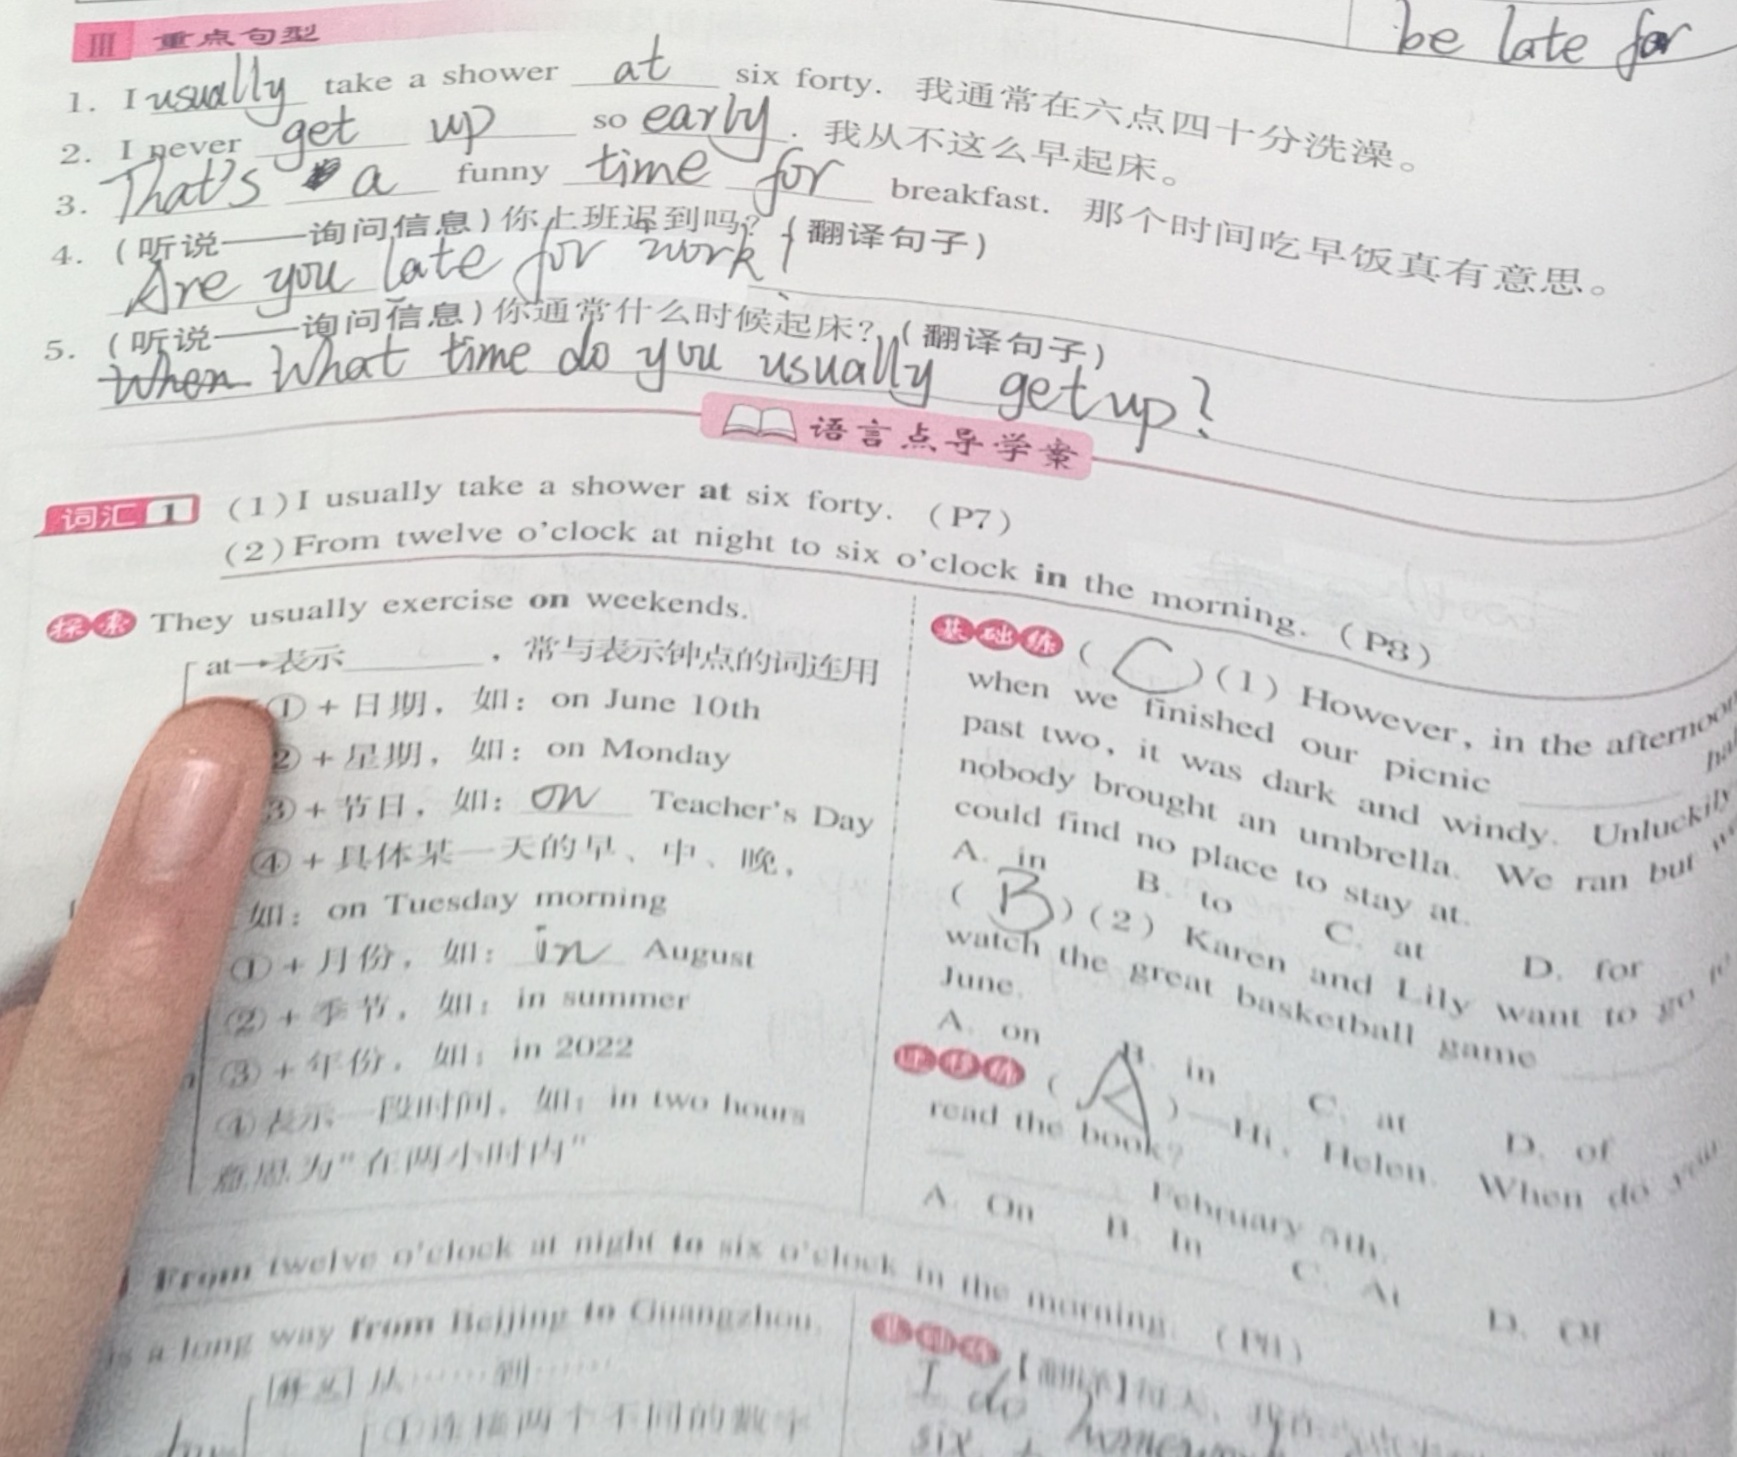 be late for
Ⅲ 重点句型
1. I usually take a shower at six forty. 我通常在六点四十分洗澡。
2. I never get up so early. 我从不这么早起床。
3. That's a funny time for breakfast. 那个时间吃早饭真有意思。
4. (听说——询问信息)你上班迟到吗?(翻译句子)
Are you late for work?
5. (听说——询问信息)你通常什么时候起床?(翻译句子)
When What time do you usually get up?
语言点导学案
词汇 1 (1)I usually take a shower at six forty. (P7)
(2)From twelve o'clock at night to six o'clock in the morning. (P8)
探索 They usually exercise on weekends.
at→表示________，常与表示钟点的词连用
①+日期，如：on June 10th
②+星期，如：on Monday
③+节日，如：on Teacher's Day
④+具体某一天的早、中、晚，
如：on Tuesday morning
①+月份，如：in August
②+季节，如：in summer
③+年份，如：in 2022
④表示一段时间，如：in two hours
意思为"在两小时内"
基础练 ( C )(1) However, in the afternoon
when we finished our picnic ________
past two, it was dark and windy. Unluckily
nobody brought an umbrella. We ran but
could find no place to stay at.
A. in B. to C. at D. for
( B )(2) Karen and Lily want to go to
watch the great basketball game ________
June.
A. on B. in C. at D. of
( A )—Hi, Helen. When do you
read the book?
—________ February 5th.
A. On B. In C. At D. Of
From twelve o'clock at night to six o'clock in the morning. (P8)
is a long way from Beijing to Guangzhou.
从……到……
①连接两个不同的数字
基础练
I do
six